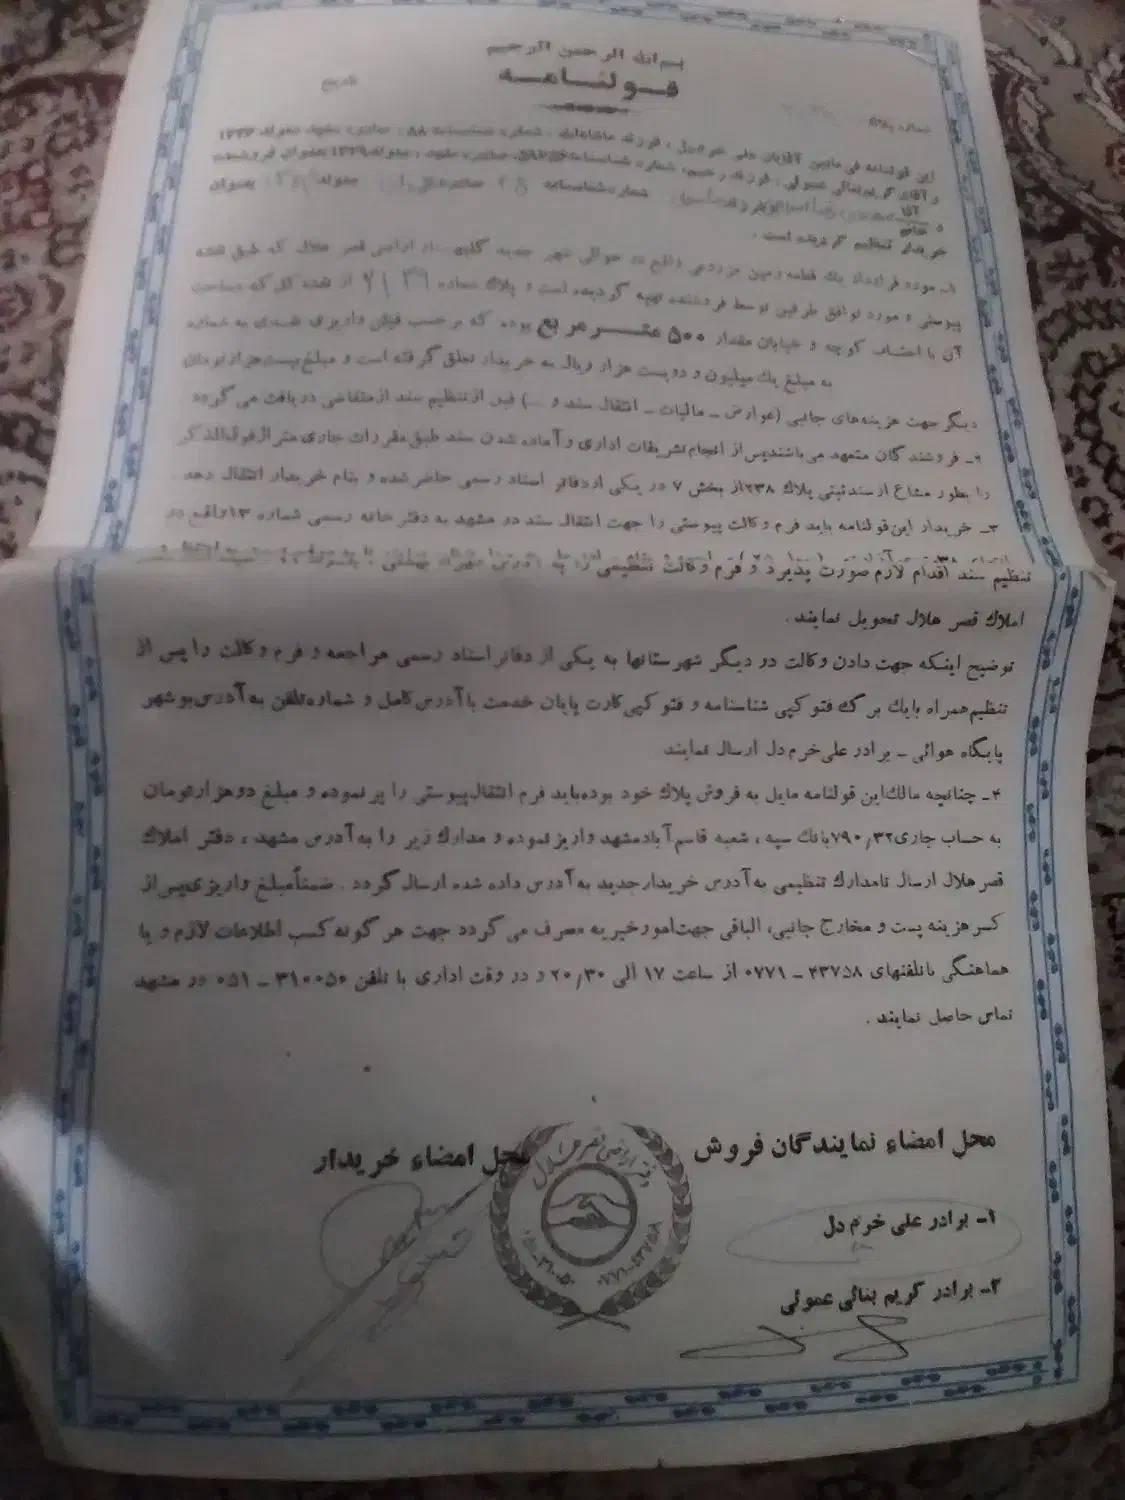 بسم الله الرحمن الرحیم
قولنامه
تاریخ
شماره
این قولنامه فی مابین آقایان علی خرم‌دل ، فرزند ماشاءاله ، شماره شناسنامه ۸۸ ، صادره مشهد متولد ۱۳۳۳
و آقای کریم بنائی عمولی ، فرزند رحیم، شماره شناسنامه صادره مشهد ، متولد ۱۳۲۹ بعنوان فروشنده
آقا
خانم
شماره شناسنامه صادره متولد بعنوان
خریدار تنظیم گردیده است .
۱ـ مورد قرارداد یک قطعه زمین مزروعی واقع در حوالی شهر جدید گلبهار از اراضی قصر هلال که طبق نقشه
پیوستی و مورد توافق طرفین توسط فروشنده تهیه گردیده است و پلاک شماره از نقشه کل که مساحت
آن با احتساب کوچه و خیابان مقدار ۵۰۰ متر مربع بوده که برحسب فیش واریزی نقدی به شماره
به مبلغ یک میلیون و دویست هزار ریال به خریدار تعلق گرفته است و مبلغ بیست هزار تومان
دیگر جهت هزینه‌های جانبی (عوارض ـ مالیات ـ انتقال سند و ...) قبل از تنظیم سند از متقاضی دریافت می گردد
۲ـ فروشندگان متعهد می‌باشند پس از انجام تشریفات اداری و آماده شدن سند طبق مقررات جاری متراژ فوق‌الذکر
را بطور مشاع از سند ثبتی پلاک ۲۳۸ از بخش ۷ در یکی از دفاتر اسناد رسمی حاضر شده و بنام خریدار انتقال دهد .
۳ـ خریدار این قولنامه باید فرم وکالت پیوستی را جهت انتقال سند در مشهد به دفتر خانه رسمی شماره ۱۳ واقع در
تنظیم سند اقدام لازم صورت پذیرد و فرم وکالت تنظیمی را به آدرس
املاک قصر هلال تحویل نمایند .
توضیح اینکه جهت دادن وکالت در دیگر شهرستانها به یکی از دفاتر اسناد رسمی مراجعه و فرم وکالت را پس از
تنظیم همراه با یک برگ فتوکپی شناسنامه و فتوکپی کارت پایان خدمت با آدرس کامل و شماره تلفن به آدرس بوشهر
پایگاه هوائی ـ برادر علی خرم دل ارسال نمایند
۴ـ چنانچه مالک این قولنامه مایل به فروش پلاک خود بوده باید فرم انتقال پیوستی را پر نموده و مبلغ دو هزار تومان
به حساب جاری ۷۹۰/۳۲ بانک سپه ، شعبه قاسم آباد مشهد واریز نموده و مدارک زیر را به آدرس مشهد ، دفتر املاک
قصر هلال ارسال تا مدارک تنظیمی به آدرس خریدار جدید به آدرس داده شده ارسال گردد . ضمناً مبلغ واریزی پس از
کسر هزینه پست و مخارج جانبی، الباقی جهت امور خیریه مصرف می گردد جهت هر گونه کسب اطلاعات لازم و یا
هماهنگی با تلفنهای ۴۳۷۵۸ ـ ۰۷۷۱ از ساعت ۱۷ الی ۲۰/۳۰ و در وقت اداری با تلفن ۳۱۰۰۵۰ ـ ۰۵۱ در مشهد
تماس حاصل نمایند .
محل امضاء نمایندگان فروش
محل امضاء خریدار
۱ـ برادر علی خرم دل
۲ـ برادر کریم بنائی عمولی
۰۷۷۱-۴۳۷۵۸